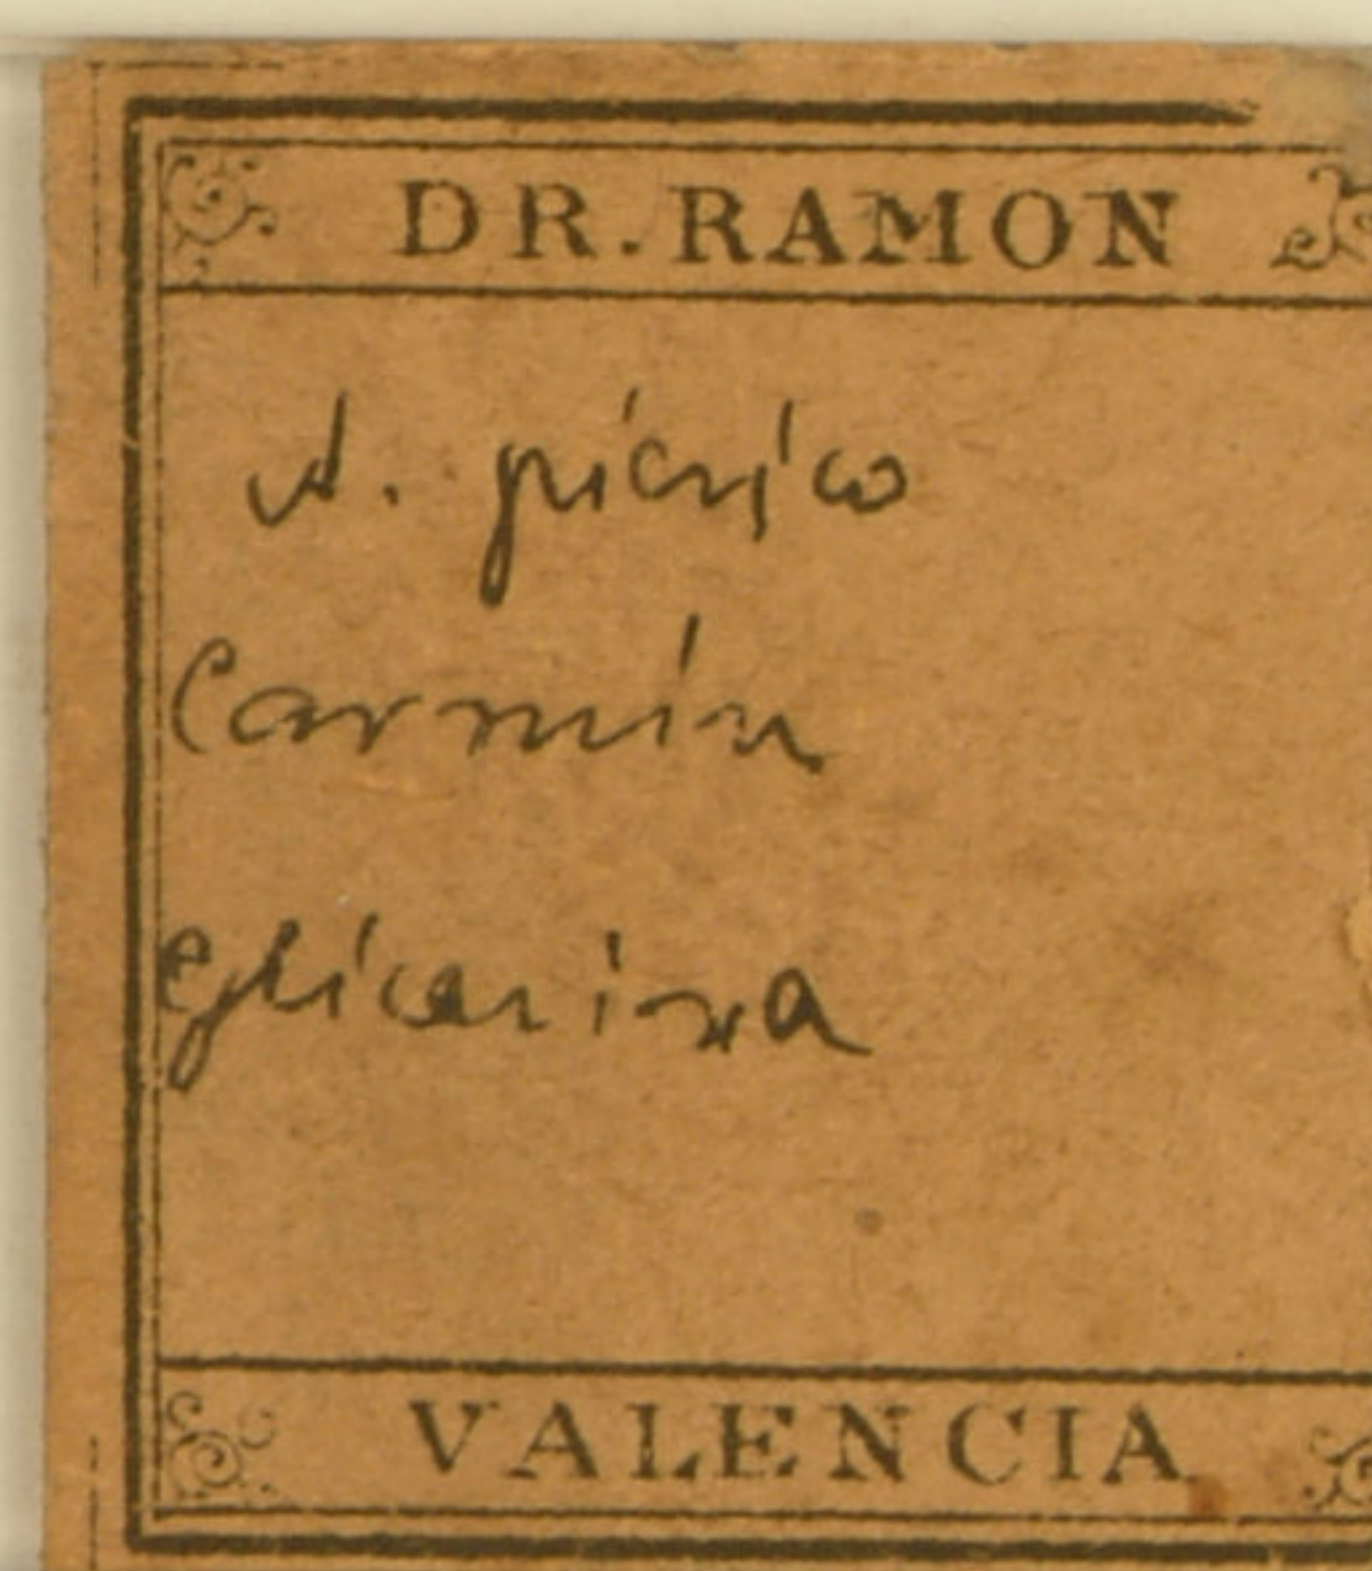 DR. RAMON
A. pícrico
Carmín
glicerina
VALENCIA